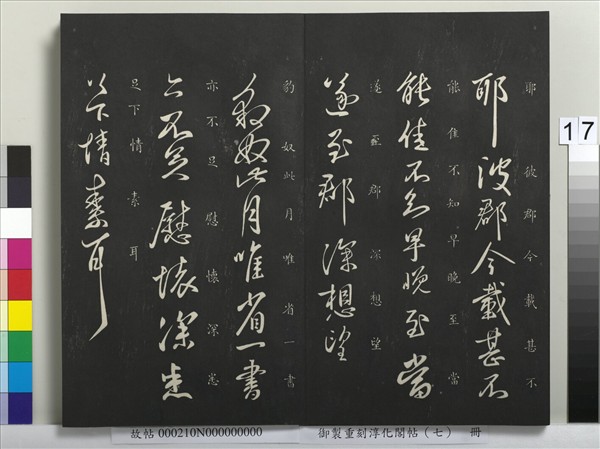 耶彼郡今載甚不
耶彼郡今載甚不
能佳不知早晚至當
能佳不知早晚至當
遂至郡深想望
遂至郡深想望
豹奴此月唯省一書
豹奴此月唯省一書
亦不足慰懷深悉
亦不足慰懷深悉
足下情素耳
足下情素耳
17
故帖 000210N000000000 御製重刻淳化閣帖（七） 冊